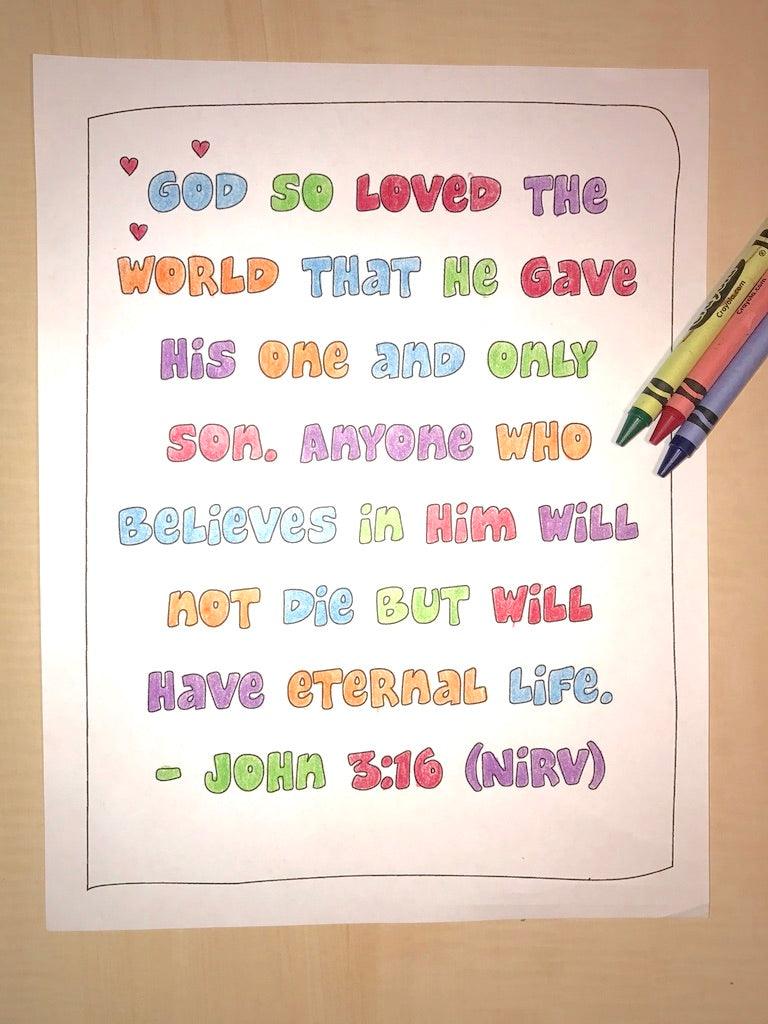 GOD SO LOVED THE
WORLD THAT HE GAVE
HIS ONE AND ONLY
SON. ANYONE WHO
BELIEVES IN HIM WILL
NOT DIE BUT WILL
HAVE ETERNAL LIFE.
- JOHN 3:16 (NIRV)
Crayola.com
Crayola.com